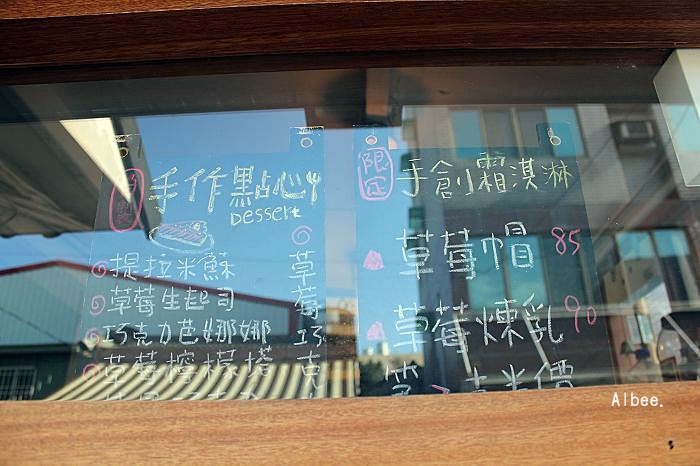 手作點心
Dessert
提拉米酥
草莓生起司
巧克力芭娜娜
草莓檸檬塔
草
莓
巧
克
限定
手創霜淇淋
草莓帽 85
草莓煉乳 90
Albee.